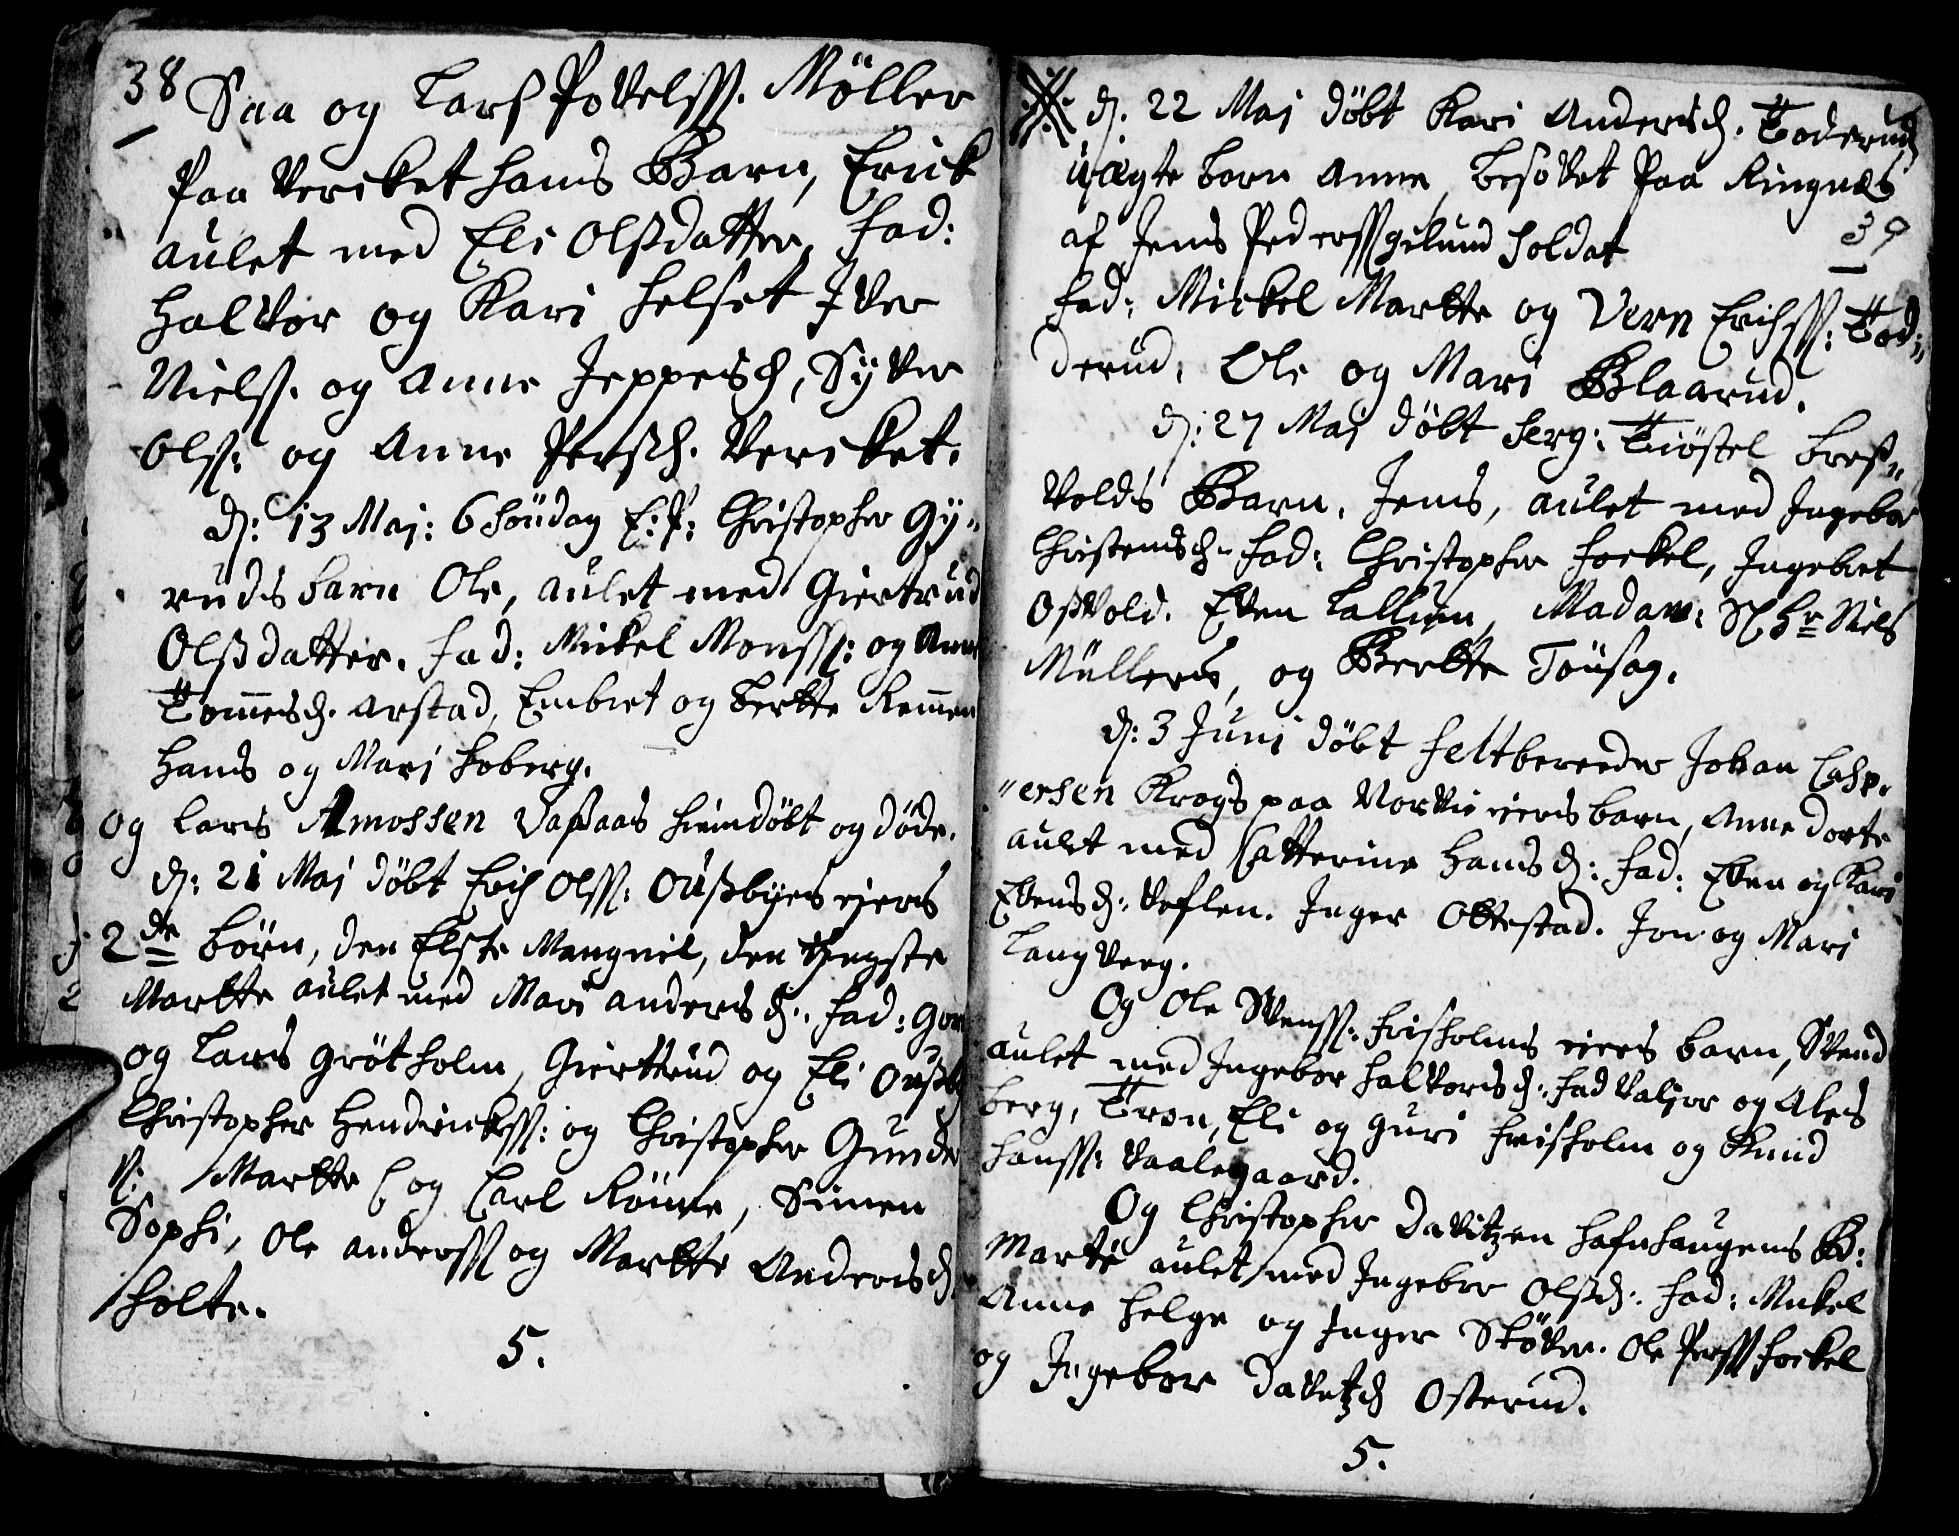 38
Saa og Lars Povelss. Möller
Paa Vercket hans Barn, Erick
aulet med Eli Olsdatter, fad:
Halvor og Kari Helset Iver
Nielss. og Anne Jeppesd, Syver
Olss: og Anne Persd. Vercket.
d: 13 Maj: 6 Söndag E: P: Christopher Gÿ„
ruds barn Ole, aulet med Giertrud
Olsdatter. fad: Mickel Monss: og Anne
Tomesd. Arstad, Embret og Berthe Remmen
Hans og Mari Soberg.
Og Lars Amossen Vasaas hiemdöbt og döde.
d: 21 Maj döbt Erich Olss: Ousbÿes ejers
2de börn, den Elste Mangnil, den Yngste
Marthe aulet med Mari Andersd: fad:
og Lars Grötholm, Gierttrud og Eli
Christopher Hendrickss: og Christopher Gunder
Marthe C og Carl Rönne, Simen
Sophi, Ole Anderss og Marthe Andersd
holte.
5.
d. 22 Maj döbt Kari Andersd. Toderud
uægte barn Anne, besovet Paa Ringnæs
39
af Jens Pederss Soldat
fad: Mickel Marthe og Vern Erichss: Tod„
derud. Ole og Mari Blaarud.
d: 27 Maj döbt Serg: Tiöstel bros„
volds Barn, Jens, aulet med Ingebor
Christensd. fad: Christopher Fockel, Ingebret
Osvold. Even Lallum, Madam: Sl Hr Niels
Müllers, og Berthe Tousag.
d: 3 Juni döbt Feltbereeder Johan Casp„
„ersen Krogs paa Norvie ejers barn, Anne Dorte
aulet med Catterine Hansd: fad: Even og Kari
Evensd: Veflen. Inger Ottestad. Jon og Mari
Langverg.
Og Ole Svenss: Frisholms ejers barn, Svend
aulet med Ingebor Halvorsd: fad Valjer og Ales
berg, Tron, Eli og Guri Frisholm og Knud
Hanss: Vaalegaard.
Og Christopher Davitzen Hafnhaugens B:
Marte aulet med Ingebor Olsd. fad: Mickel
Anne Helge og Inger Stöver. Ole Perss Fockel
og Ingebor Davetzd Osterud.
5.